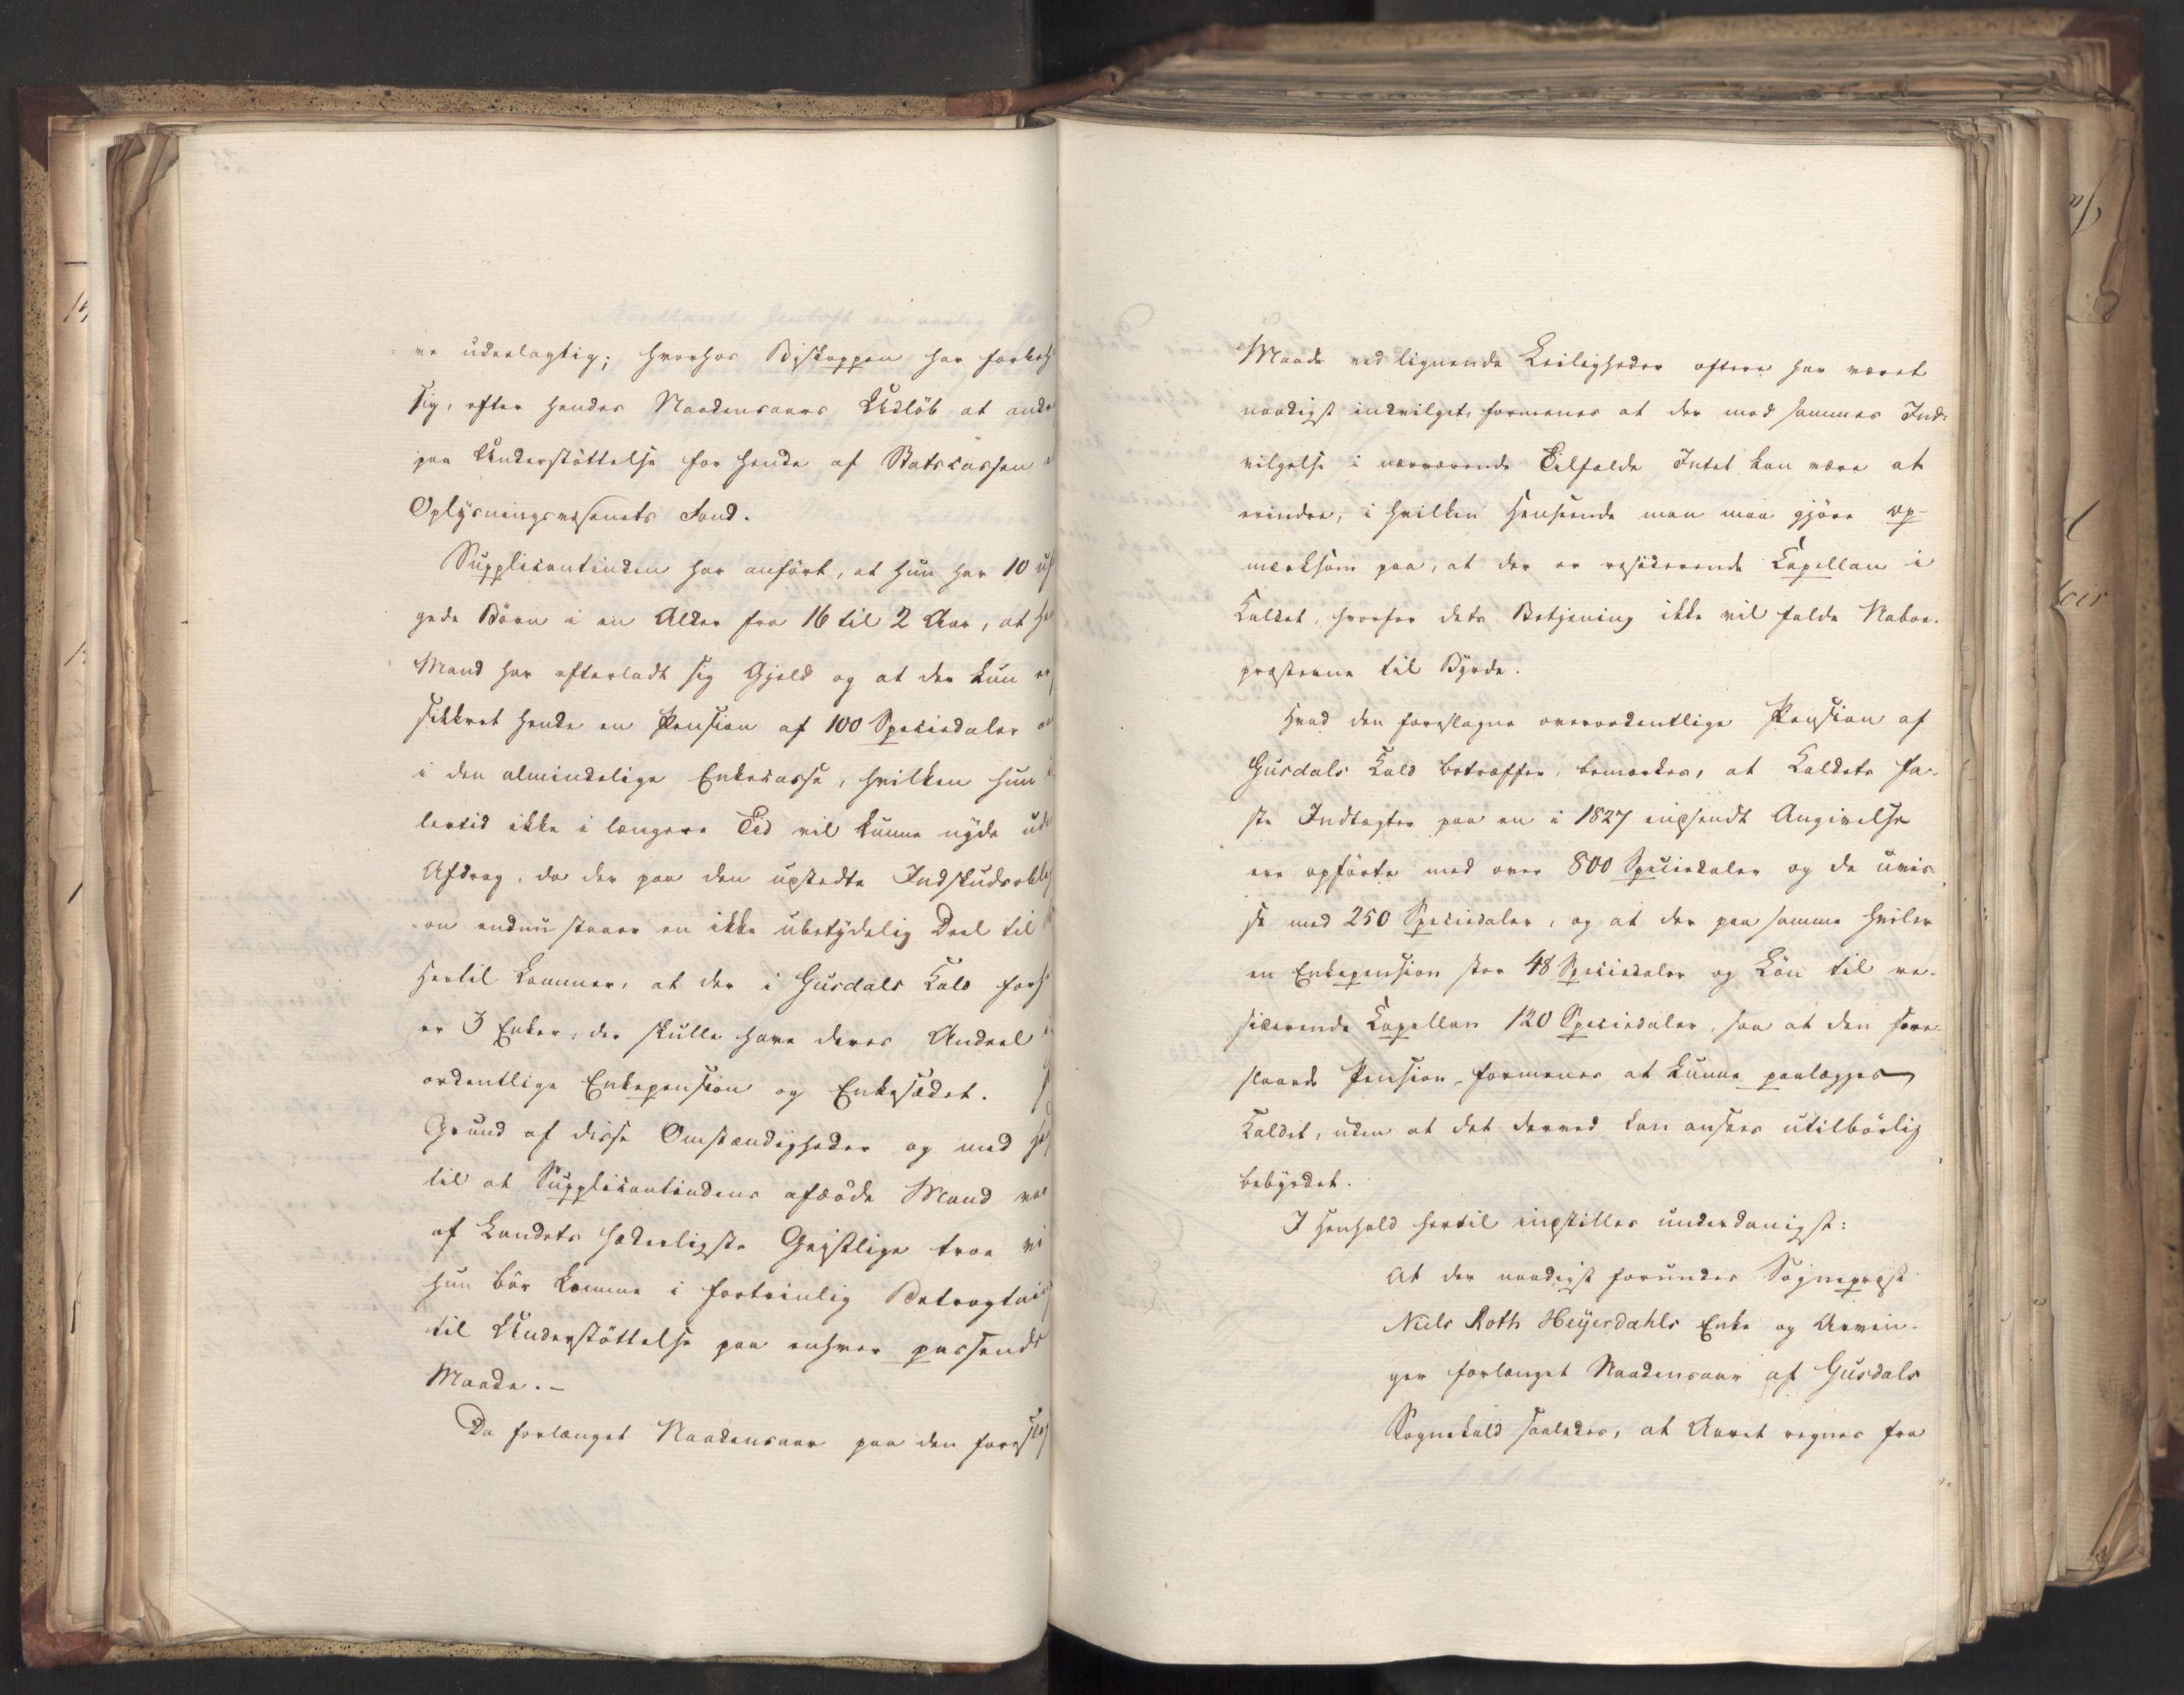 re uderlagtig; hvorhos Biskoppen har forbeh
sig, efter hendes Naadensaars Udløb at andr
paa Understøttelse for hende af Statscassen
Oplysningsvæsenets Fond.
Supplicantinden har anført, at hun har 10 uf
gede Børn i en Alder fra 16 til 2 Aar, at he
Mand har efterladt sig Gjeld og at der kun er
sikkret hende en Pension af 100 Speciedaler
i den almindelige Enkecasse, hvilken hun i
lertid ikke i længere Tid vil kunne nyde ude
Afdrag, da der paa den udstedte Indskudsobli
on endnu staaer en ikke ubetydelig Deel til
Hertil kommer, at der i Gusdals Kald forh
er 3 Enker, der skulle have deres Andeel i
ordentlige Enkepension og Enkesædet.
Grund af disse Omstændigheder og med He
til at Supplicantindens afdøde Mand var
af Landets hæderligste Geistlige troe vi
hun bør komme i fortrinlig Betragtni
til Understøttelse paa enhver passende
Maade.-
Da forlænget Naadensaar paa den foresla
Maade ved lignende Leiligheder oftere har været
naadigst indvilget, formenes at der mod sammes Ind-
vilgelse i nærværende Tilfælde Intet kan være at
erindre, i hvilken Henseende man maa gjøre op-
mærksom paa, at der er residerende Capellan i
Kaldet, hvorfor dets Betjening ikke vil falde Naboe-
præsterne til Byrde.
Hvad den foreslagne overordentlige Pension af
Gusdals Kald betræffer, bemærkes, at Kaldets fa-
ste Indtægter paa en i 1827 indsendt Angivelse
ere opførte med over 800 Speciedaler og de uvis-
se med 250 Speciedaler, og at der paa samme hviler
en Enkepension stor 48 Speciedaler og Løn til re-
siderende Capellan 120 Speciedaler, saa at den fore-
slaaede Pension formenes at kunne paalægges
Kaldet, uden at det derved kan ansees utilbørlig
bebyrdet.
I Henhold hertil indstilles underdanigst:
At der naadigst forundes Sognepræst
Niels Roth Heyerdahls Enke og Arvin-
ger forlænget Naadensaar af Gusdals
Sognekald saaledes, at Aaret regnes fra